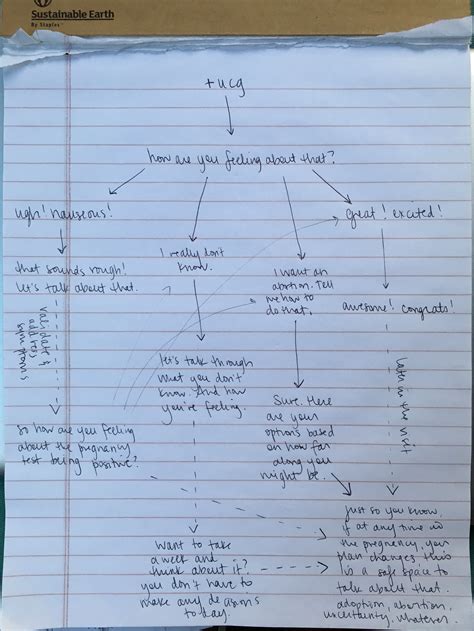 Sustainable Earth
By Staples
+ucg
how are you feeling about that?
ugh! nauseous!
great! excited!
that sounds rough!
let's talk about that.
I really don't
know.
I want an
abortion. Tell
me how to
do that.
awesome! congrats!
validate &
address
symptoms
let's talk through
what you don't
know. And how
you're feeling.
Sure. Here
are your
options based
on how far
along you
might be.
later in the visit
so how are you feeling
about the pregnancy
test being positive?
want to take
a week and
think about it?
you don't have to
make any decisions
today.
just so you know,
if at any time in
the pregnancy, your
plan changes this
is a safe space to
talk about that.
adoption, abortion,
uncertainty, whatever.